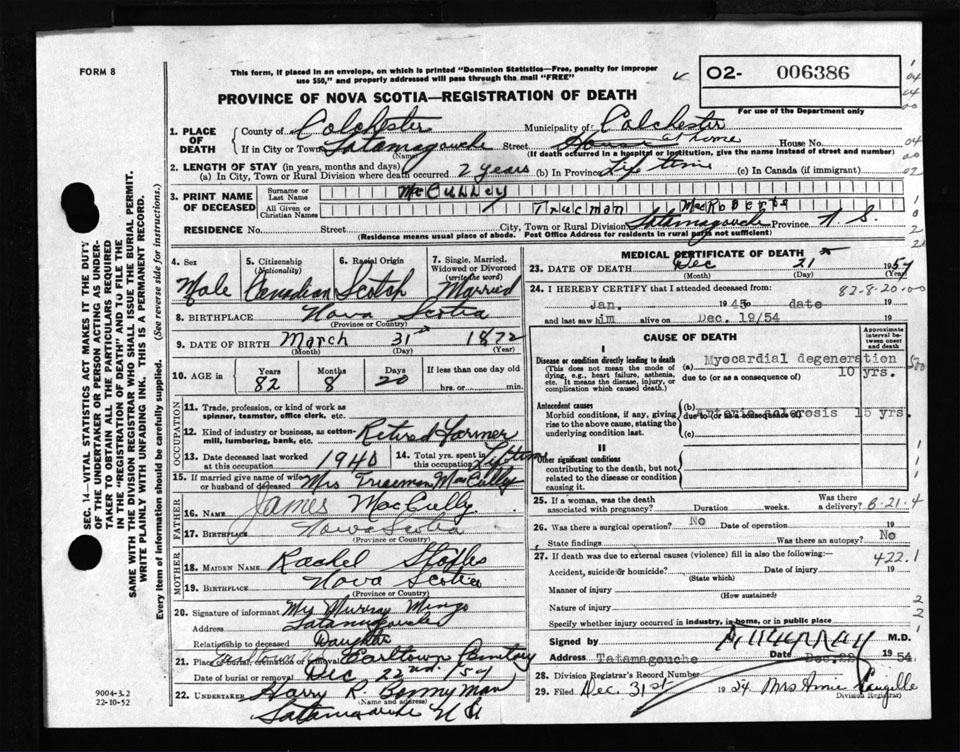 FORM 8
This form, if placed in an envelope, on which is printed "Dominion Statistics—Free, penalty for improper
use $50," and properly addressed will pass through the mail "FREE"
02- 006386
For use of the Department only
PROVINCE OF NOVA SCOTIA—REGISTRATION OF DEATH
SEC. 14—VITAL STATISTICS ACT MAKES IT THE DUTY
OF THE UNDERTAKER OR PERSON ACTING AS UNDER-
TAKER TO OBTAIN ALL THE PARTICULARS REQUIRED
IN THE "REGISTRATION OF DEATH" AND TO FILE THE
SAME WITH THE DIVISION REGISTRAR WHO SHALL ISSUE THE BURIAL PERMIT.
WRITE PLAINLY WITH UNFADING INK. THIS IS A PERMANENT RECORD.
Every item of information should be carefully supplied. (See reverse side for instructions.)
1. PLACE OF DEATH County of Colchester Municipality of Colchester
If in City or Town Tatamagouche Street at home House No.
(Name) (If death occurred in a hospital or institution, give the name instead of street and number)
2. LENGTH OF STAY (in years, months and days)
(a) In City, Town or Rural Division where death occurred 2 years (b) In Province Life time (c) In Canada (if immigrant)
3. PRINT NAME OF DECEASED Surname or Last Name McCulley
All Given or Christian Names Trueman MacRoberts
RESIDENCE No. Street City, Town or Rural Division Tatamagouche Province N. S.
(Residence means usual place of abode. Post Office Address for residents in rural parts not sufficient)
4. Sex Male
5. Citizenship (Nationality) Canadian
6. Racial Origin Scotch
7. Single, Married, Widowed or Divorced (write the word) Married
8. BIRTHPLACE Nova Scotia
(Province or Country)
9. DATE OF BIRTH March 31 1872
(Month) (Day) (Year)
10. AGE in Years 82 Months 8 Days 20 If less than one day old
hrs. or min.
OCCUPATION
11. Trade, profession, or kind of work as spinner, teamster, office clerk, etc.
12. Kind of industry or business, as cotton-mill, lumbering, bank, etc. Retired Farmer
13. Date deceased last worked at this occupation 1940 14. Total yrs. spent in this occupation Lifetime
15. If married give name of wife or husband of deceased Mrs Trueman MacCully
FATHER
16. NAME James MacCully
17. BIRTHPLACE Nova Scotia
(Province or Country)
MOTHER
18. MAIDEN NAME Rachel
19. BIRTHPLACE Nova Scotia
(Province or Country)
20. Signature of informant Mrs Murray Mingo
Address Tatamagouche
Relationship to deceased Daughter
21. Place of burial, cremation or removal Earltown Cemetery
Date of burial or removal Dec 22nd /54
22. UNDERTAKER Harry R. Bonnyman
(Name and address)
Tatamagouche N S
9004-3.2
22-10-52
MEDICAL CERTIFICATE OF DEATH
23. DATE OF DEATH Dec 21 1954
(Month) (Day) (Year)
24. I HEREBY CERTIFY that I attended deceased from 82-8-20-00
Jan. 1945 to date 19
and last saw him alive on Dec. 19/54 19
CAUSE OF DEATH
Approximate interval between onset and death
I
Disease or condition directly leading to death
(This does not mean the mode of dying, e.g., heart failure, asthenia, etc. It means the disease, injury, or complication which caused death.)
(a) Myocardial degeneration
due to (or as a consequence of) 10 yrs.
Antecedent causes
Morbid conditions, if any, giving rise to the above cause, stating the underlying condition last.
(b) Arteriosclerosis 15 yrs.
due to (or as a consequence of)
(c)
II
Other significant conditions
contributing to the death, but not related to the disease or condition causing it.
25. If a woman, was the death associated with pregnancy? Duration weeks. Was there a delivery? 8-21-4
26. Was there a surgical operation? No Date of operation 19
State findings Was there an autopsy? No
27. If death was due to external causes (violence) fill in also the following: 422.1
Accident, suicide or homicide? Date of injury 19
(State which)
Manner of injury
(How sustained)
Nature of injury
Specify whether injury occurred in industry, in home, or in public place
Signed by M.D.
Address Tatamagouche Date Dec. 22 1954
28. Division Registrar's Record Number
29. Filed Dec 31st 1954 Mrs
Division Registrar